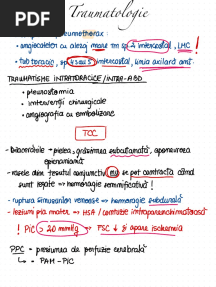 Traumatologie
PDF
pneumotorax :
• angiocateter cu calibru mare în sp 2 intercostal, LMC !
• tub toracic, sp 4 sau 5 intercostal, linia axilară ant.
TRAUMATISME INTRATORACICE / INTRA-ABD
• pleurostomia
• intervenții chirurgicale
• angiografia cu embolizare
TCC
pielea, grăsimea subcutanată, aponevroza
epicraniană
- vasele din țesutul conjunctiv nu se pot contracta când
sunt rupte → hemoragie semnificativă !
- ruptura sinusurilor venoase → hemoragie subdurală
- leziuni pia mater → HSA / contuzie intraparenchimatoasă
! PIC > 20 mmHg → FSC ↓ și apare ischemia
PPC = presiunea de perfuzie cerebrală
↳ = PAM - PIC